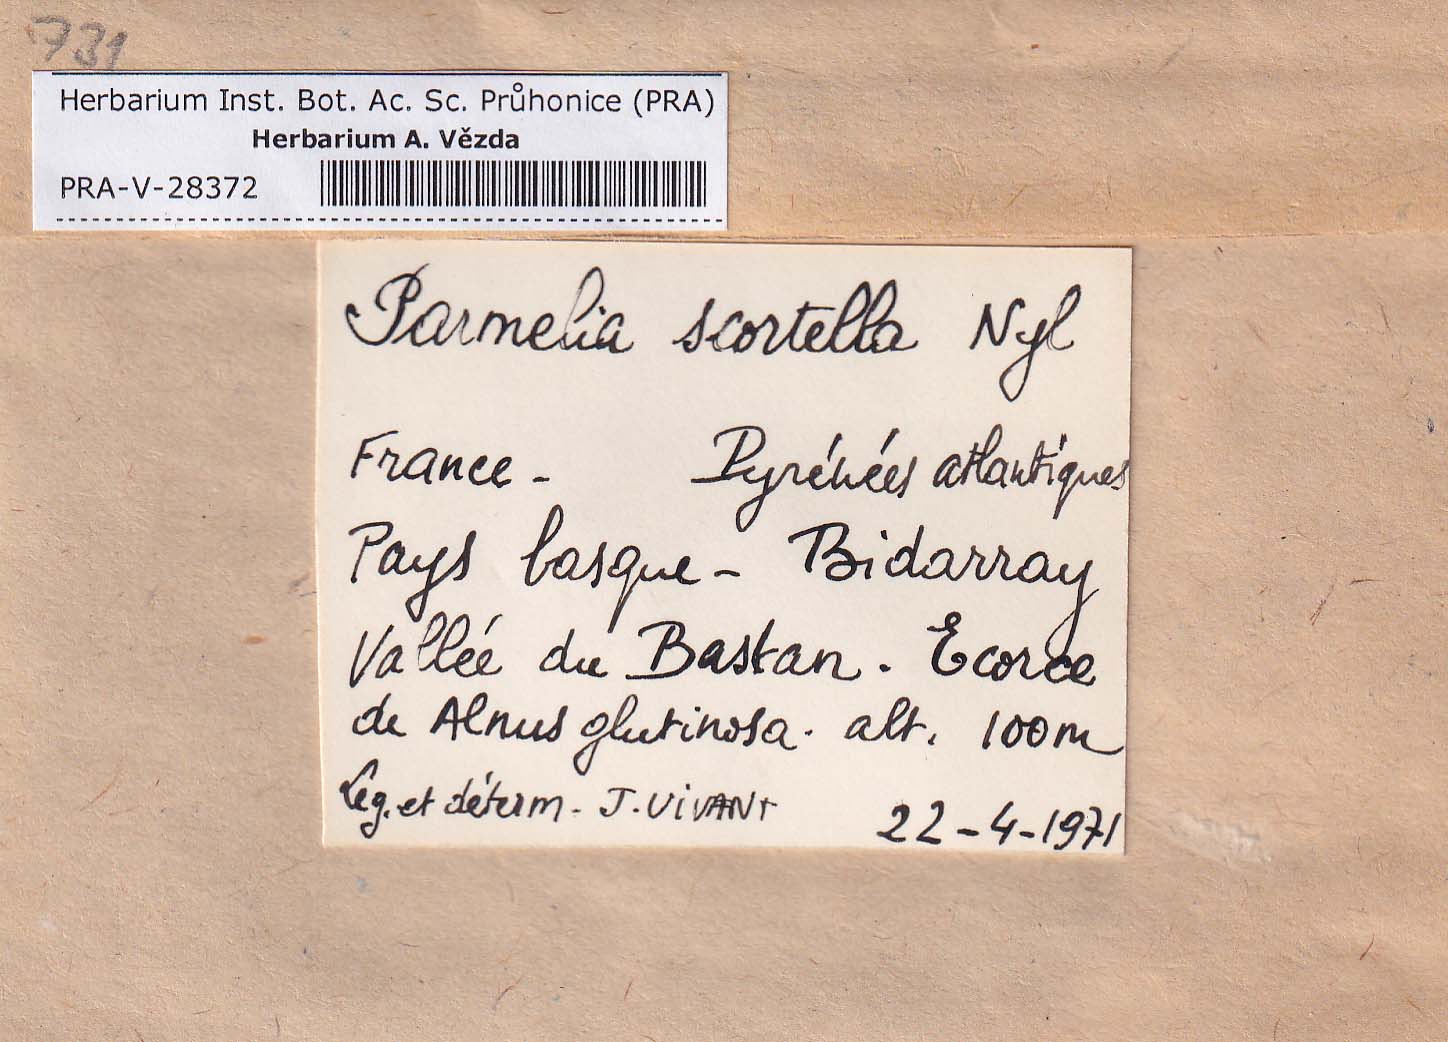 731
Herbarium Inst. Bot. Ac. Sc. Průhonice (PRA)
Herbarium A. Vězda
PRA-V-28372
Parmelia scortella Nyl
France - Pyrénées atlantiques
Pays basque - Bidarray
Vallée du Bastan. Ecorce
de Alnus glutinosa. alt. 100m
Leg. et déterm. J. VIVANT 22-4-1971